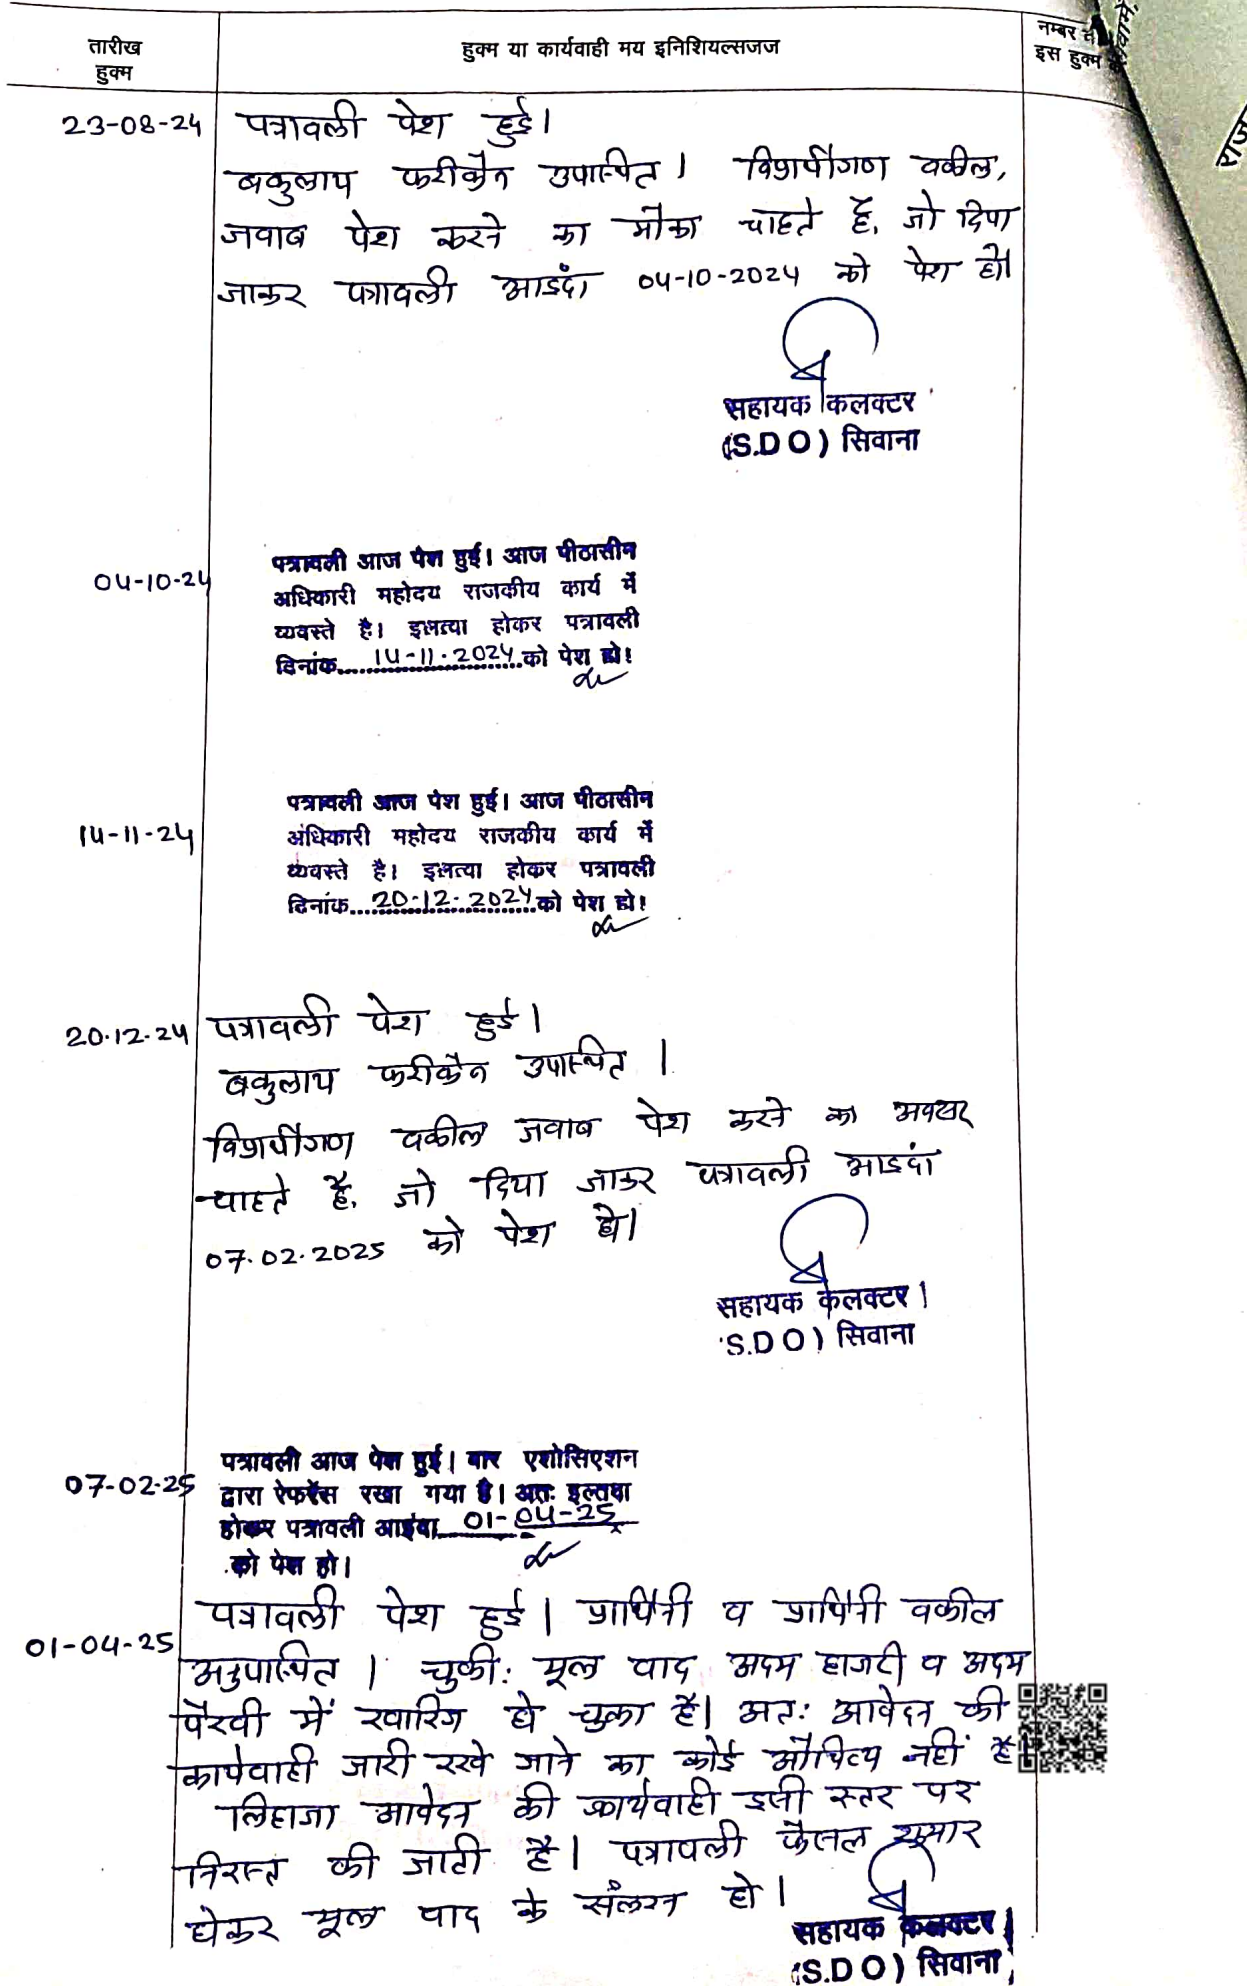 तारीख
हुक्म
हुक्म या कार्यवाही मय इनिशियल्सजज
नम्बर
इस हुक्म
23-08-24
पत्रावली पेश हुई।
वकुलाय फरीकैन उपस्थित। विप्रार्थीगण वकील,
जवाब पेश करने का मौका चाहते है, जो दिया
जाकर पत्रावली आइंदा 04-10-2024 को पेश हो।
सहायक कलक्टर
(S.D O) सिवाना
04-10-24
पत्रावली आज पेश हुई। आज पीठासीन
अधिकारी महोदय राजकीय कार्य में
व्यवस्ते है। इलत्या होकर पत्रावली
दिनांक 14-11-2024 को पेश हो।
14-11-24
पत्रावली आज पेश हुई। आज पीठासीन
अधिकारी महोदय राजकीय कार्य में
व्यवस्ते है। इलत्या होकर पत्रावली
दिनांक 20-12-2024 को पेश हो।
20.12.24
पत्रावली पेश हुई।
वकुलाय फरीकैन उपस्थित।
विप्रार्थीगण वकील जवाब पेश करने का अवसर
चाहते है, जो दिया जाकर पत्रावली आइंदा
07.02.2025 को पेश हो।
सहायक कलक्टर
S.D O) सिवाना
07-02-25
पत्रावली आज पेश हुई। बार एशोसिएशन
द्वारा रेफरेंस रखा गया है। अतः इल्तवा
होकर पत्रावली आइंदा 01-04-25
को पेश हो।
01-04-25
पत्रावली पेश हुई। प्रार्थिनी व प्रार्थिनी वकील
अनुपस्थित। चुकी: मूल वाद अदम हाजरी व अदम
पैरवी में खारिज हो चुका है। अत: आवेदन की
कार्यवाही जारी रखे जाने का कोई औचित्य नहीं है।
लिहाजा आवेदन की कार्यवाही इसी स्तर पर
निरस्त की जाती है। पत्रावली फैसल शुमार
होकर मूल वाद के संलग्न हो।
सहायक कलक्टर
(S.D O) सिवाना